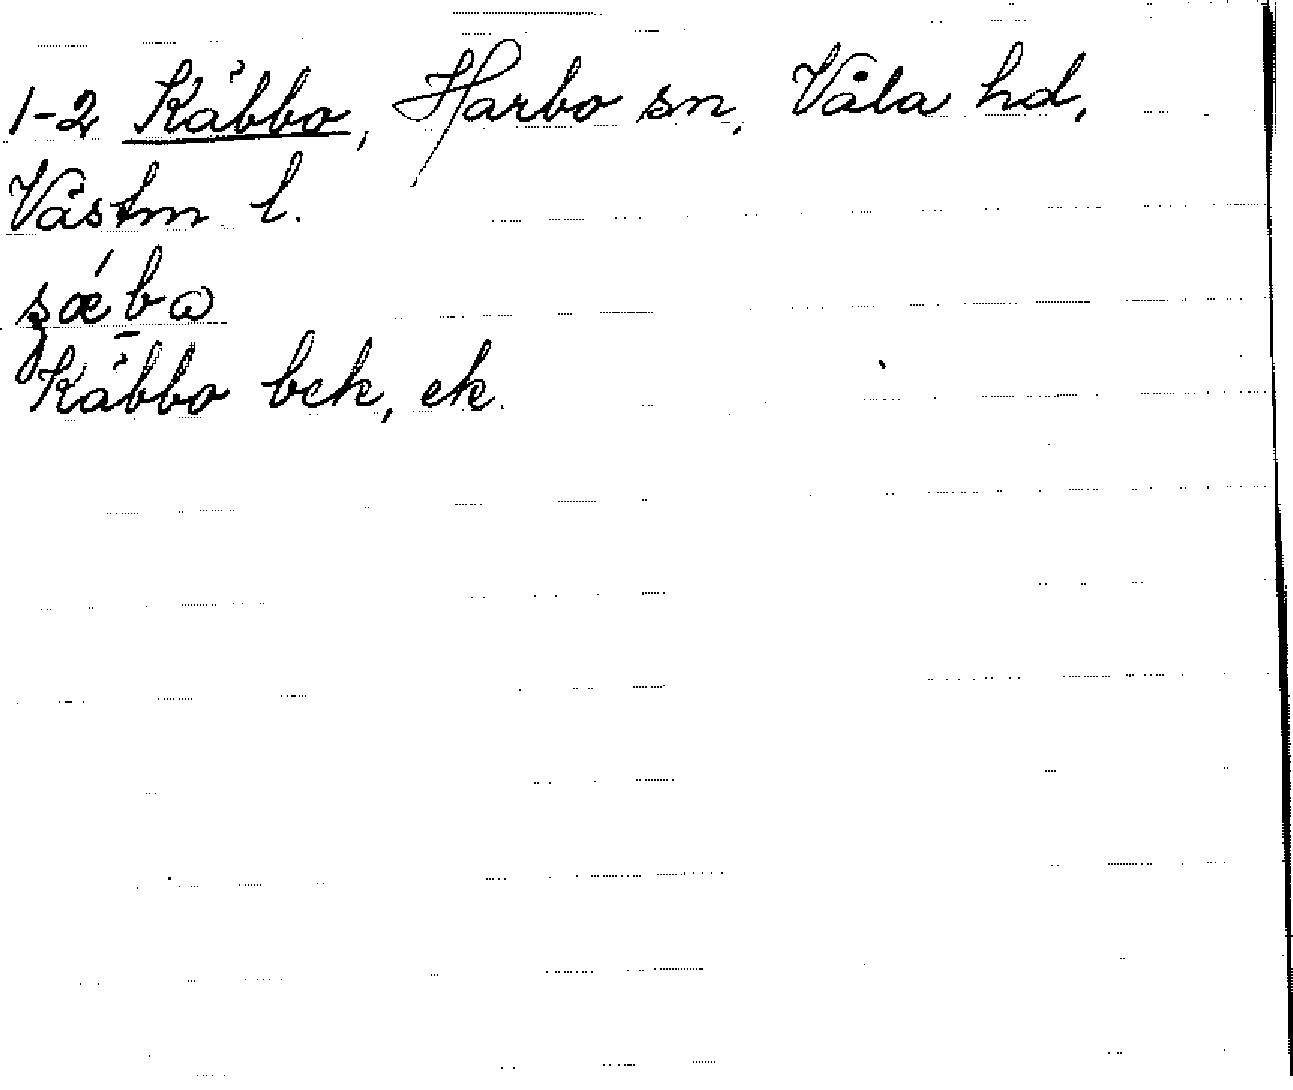 1-2 Käbbo, Harbo sn, Våla hd,
Västm l.
Käbbo bek, ek.